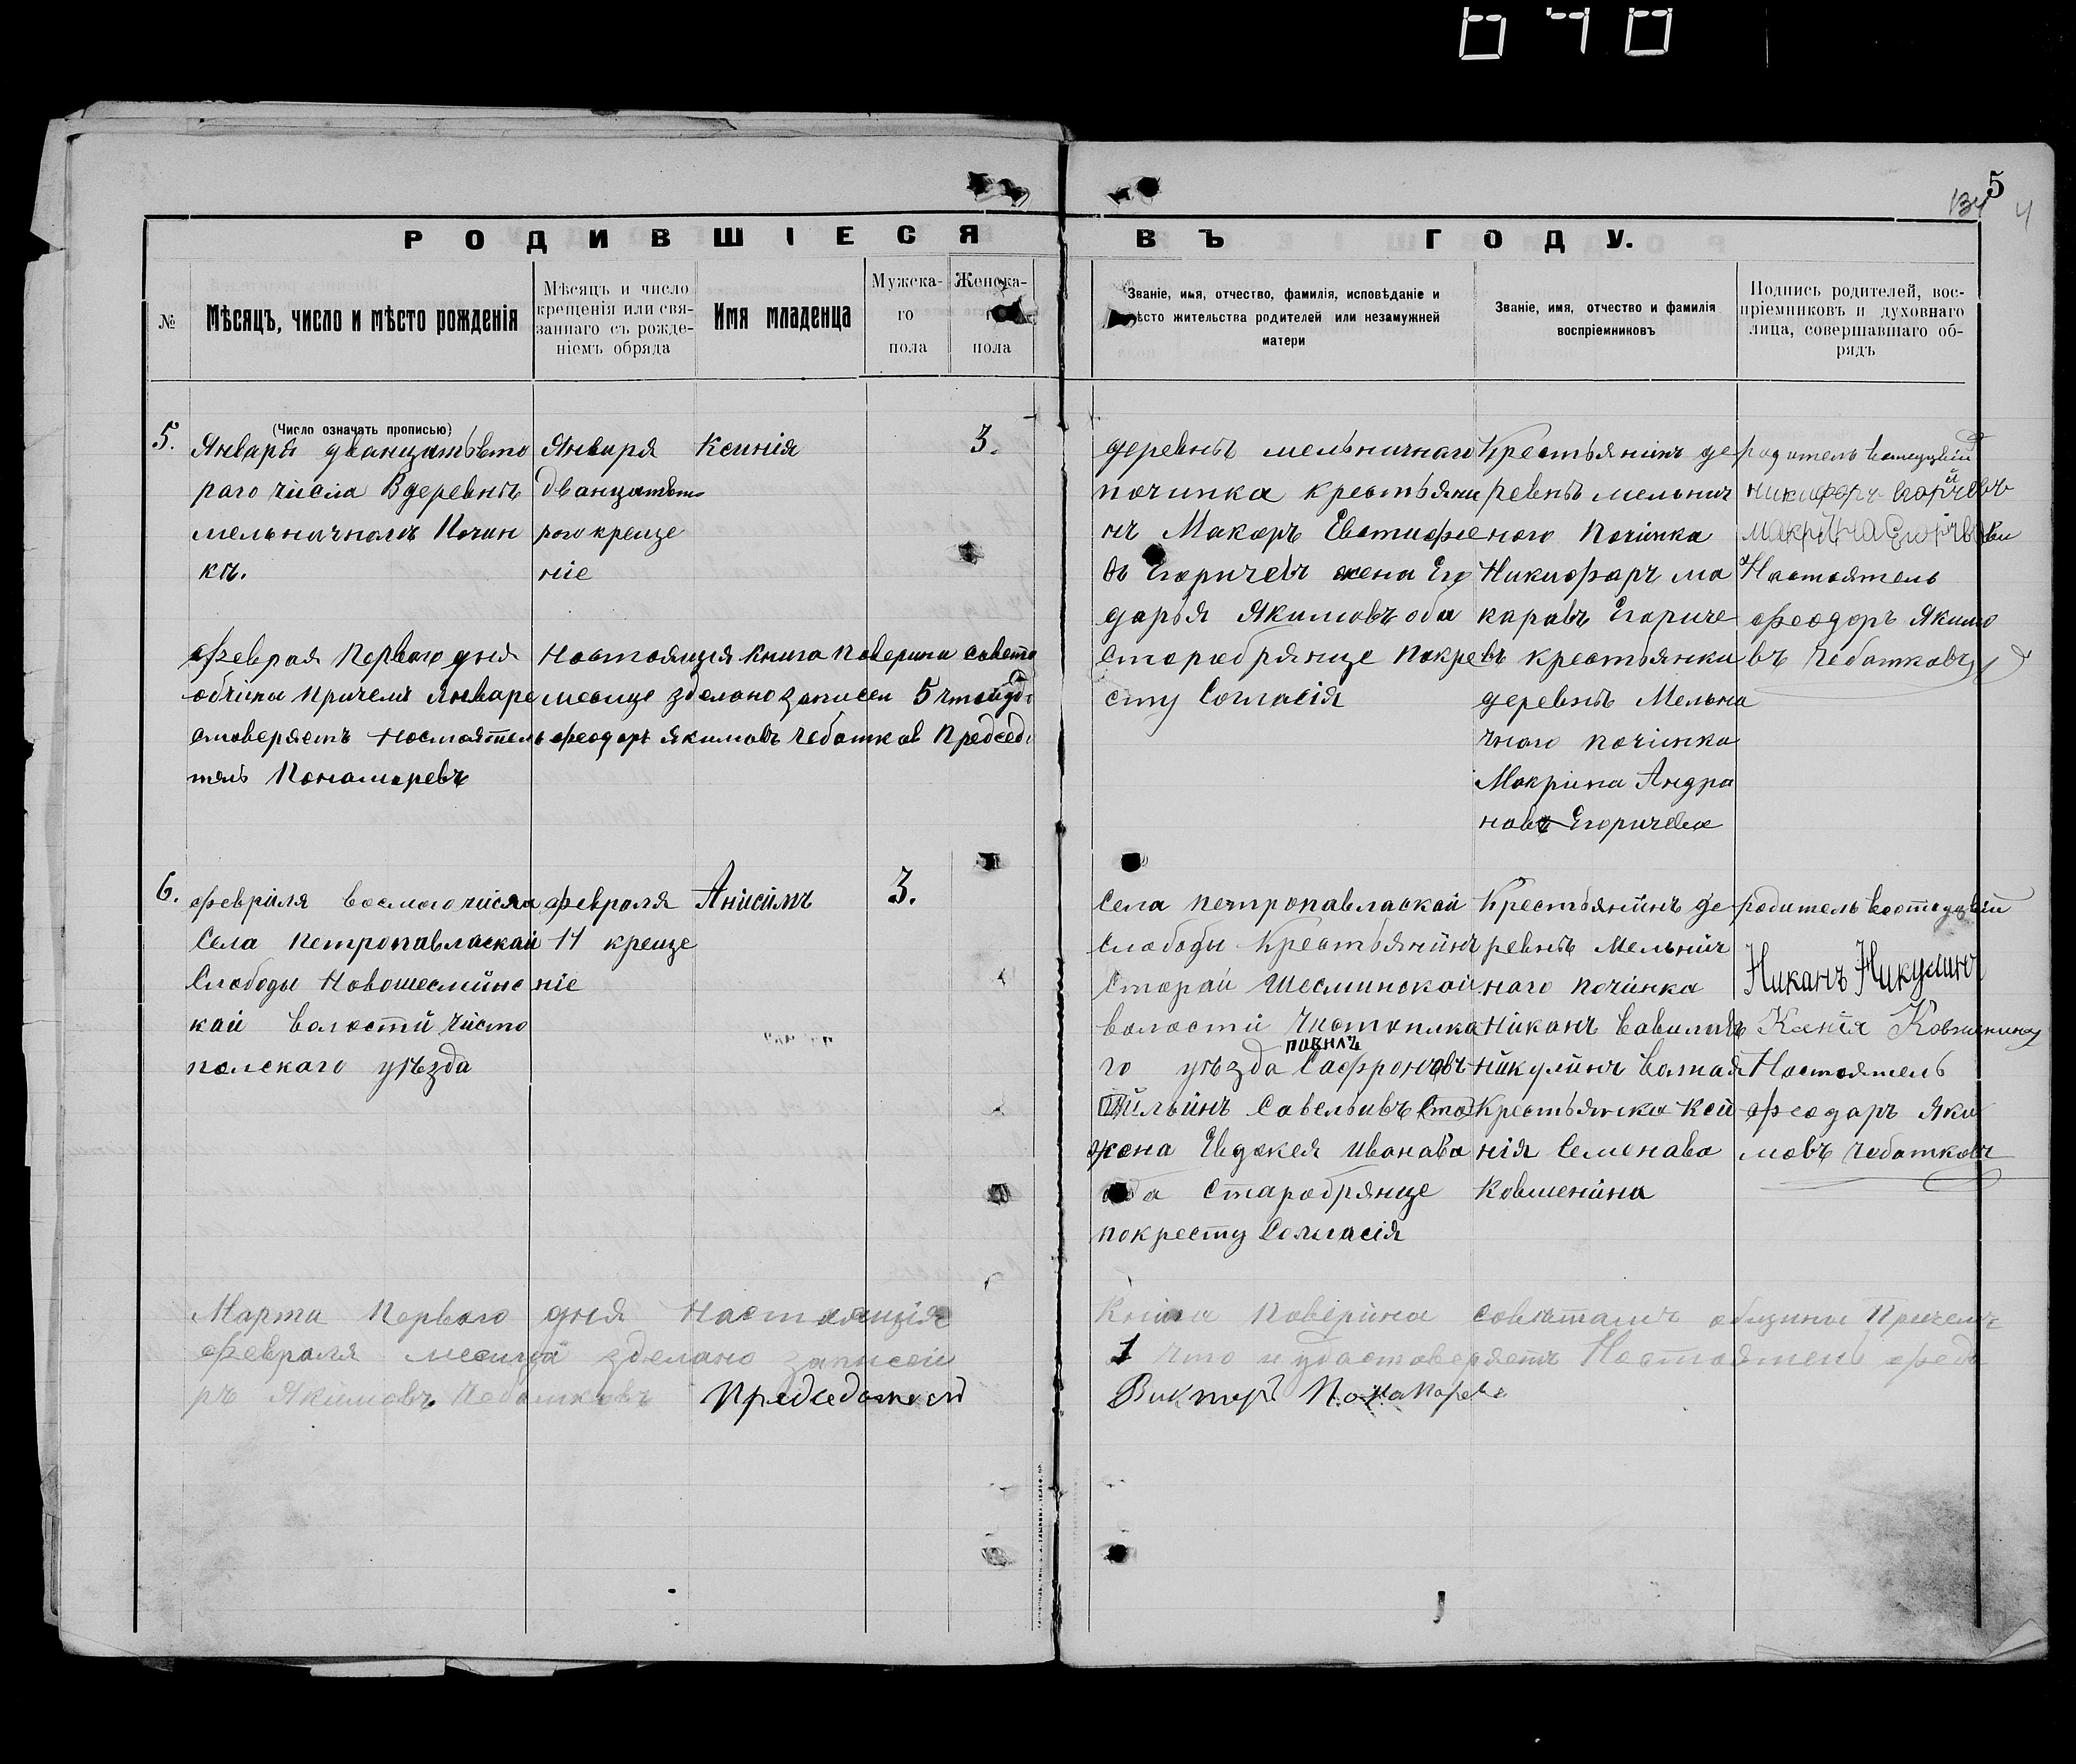 5
134 4
РОДИВШІЕСЯ ВЪ ГОДУ.
№
Мѣсяцъ, число и мѣсто рожденія
Мѣсяцъ и число
крещенія или свя-
заннаго съ рожде-
ніемъ обряда
Имя младенца
Мужска-
го
пола
Женска-
пола
Званіе, имя, отчество, фамилія, исповѣданіе и
мѣсто жительства родителей или незамужней
матери
Званіе, имя, отчество и фамилія
воспріемниковъ
Подпись родителей, вос-
пріемниковъ и духовнаго
лица, совершавшаго об-
рядъ
(Число означать прописью)
5.
Января дванцатьвто
раго числа В деревнѣ
мельничномъ Почин
кѣ.
Января
дванцатьвто
рого креще
ніе
Ксинія
3.
деревнѣ мельничнаго
починка крестьяни
нъ Макоръ Евстифіе
въ Егоричевъ жена Его
дарья Якимовъ оба
старобрянце покре
сту Согласія
Крестьянинъ де
ревнѣ мельнич
ного Починка
Никифаръ ма
каравъ Егориче
въ крестьянки
деревнѣ Мельни
чного починка
Макріна Андра
новъ Егоричева
родитель
никифоръ Егоричевъ
макрина
Настоятель
феодоръ Якимо
въ Чеботковъ
февраля Первого дня Настоящия книга поверина совето
обчіны причемъ Январе месице зделано записеи 5 что и удо
стоверяетъ Настоятель феодоръ Якимовъ Чеботков Председа
тель Пономаревъ
6.
февріля восмого числа
Села петропавласкай
Слободы Новошесминс
кай воласти чисто
полскаго уѣзда
февраля
11 креще
ніе
Анісимъ
3.
Села петропавласкай
слободы Крестьянинъ
Старай Шесминской
воласти Чистополска
го уѣзда Сафроновъ
павилъ
ильинъ Савельивъ
жена Евдокея Иванава
оба Старобрянце
покресту Согласія
Крестьянинъ де
ревнѣ Мельнич
наго починка
Никонъ Вавиловъ
Никулинъ
Крестьянка Ксе
нія Семенава
Ковшенина
родитель
Никанъ Никулинъ
Ксенія Ковшенина
Настоятель
феодаръ Яки
мовъ Чеботковъ
Марта Первого дня Настоящия книга поверина советамъ общины Причемъ
февраля месица зделано записеи 1 что и удостоверяетъ Настоятель федо
ръ Якимовъ Чеботковъ Председатель Викторъ Понамарев